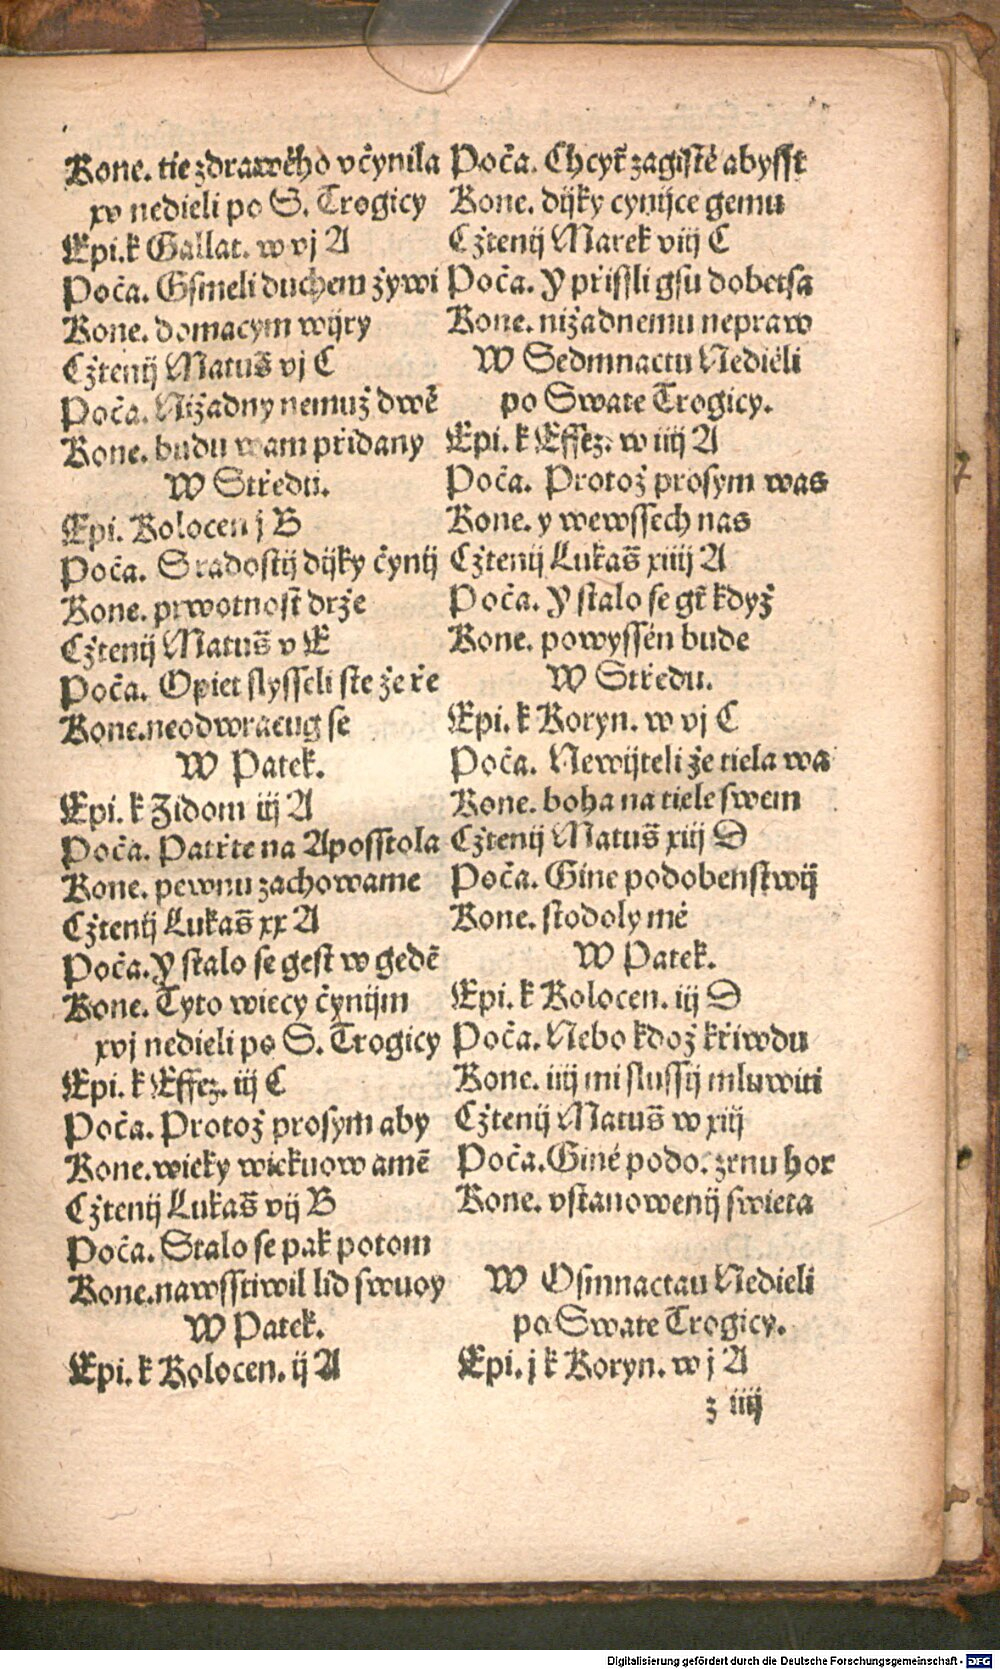 Kone. tie zdrawėho včynila
xv nedieli po S. Trogicy
Epi. k Gallat. w vj A
Poča. Gsmeli duchem żywi
Kone. domacym wijry
Cżtenij Matuš vj C
Poča. Niżadny nemuż dwē
Kone. budu wam přidany
W Středu.
Epi. Kolocen j B
Poča. S radostij dijky čynij
Kone. prwotnost drże
Cżtenij Matuš v E
Poča. Opiet slysseli ste że ře
Kone. neodwracug se
W Patek.
Epi. k Zidom iij A
Poča. Patřte na Aposstola
Kone. pewnu zachowame
Cżtenij Lukaš xx A
Poča. Y stalo se gest w gedē
Kone. Tyto wiecy čynijm
xvj nedieli po S. Trogicy
Epi. k Effez. iij C
Poča. Protoż prosym aby
Kone. wieky wiekuow amē
Cżtenij Lukaš vij B
Poča. Stalo se pak potom
Kone. nawsstiwil lid swuoy
W Patek.
Epi. k Kolocen. ij A
Poča. Chcyť zagistė abysst
Kone. dijky cynijce gemu
Cżtenij Marek viij C
Poča. Y přissli gsu do betsa
Kone. niżadnemu nepraw
W Sedmnactu Nediėli
po Swate Trogicy.
Epi. k Effez. w iiij A
Poča. Protoż prosym was
Kone. y wewssech nas
Cżtenij Lukaš xiiij A
Poča. Y stalo se gť kdyż
Kone. powyssėn bude
W Středu.
Epi. k Koryn. w vj C
Poča. Newijteli że tiela wa
Kone. boha na tiele swem
Cżtenij Matuš xiij D
Poča. Gine podobenstwij
Kone. stodoly mė
W Patek.
Epi. k Kolocen. iij D
Poča. Nebo kdoż křiwdu
Kone. iiij mi slussij mluwiti
Cżtenij Matuš w xiij
Poča. Ginė podo. zrnu hor
Kone. vstanowenij swieta
W Osmnactau Nedieli
po Swate Trogicy.
Epi. j k Koryn. w j A
z iiij
Digitalisierung gefördert durch die Deutsche Forschungsgemeinschaft - DFG